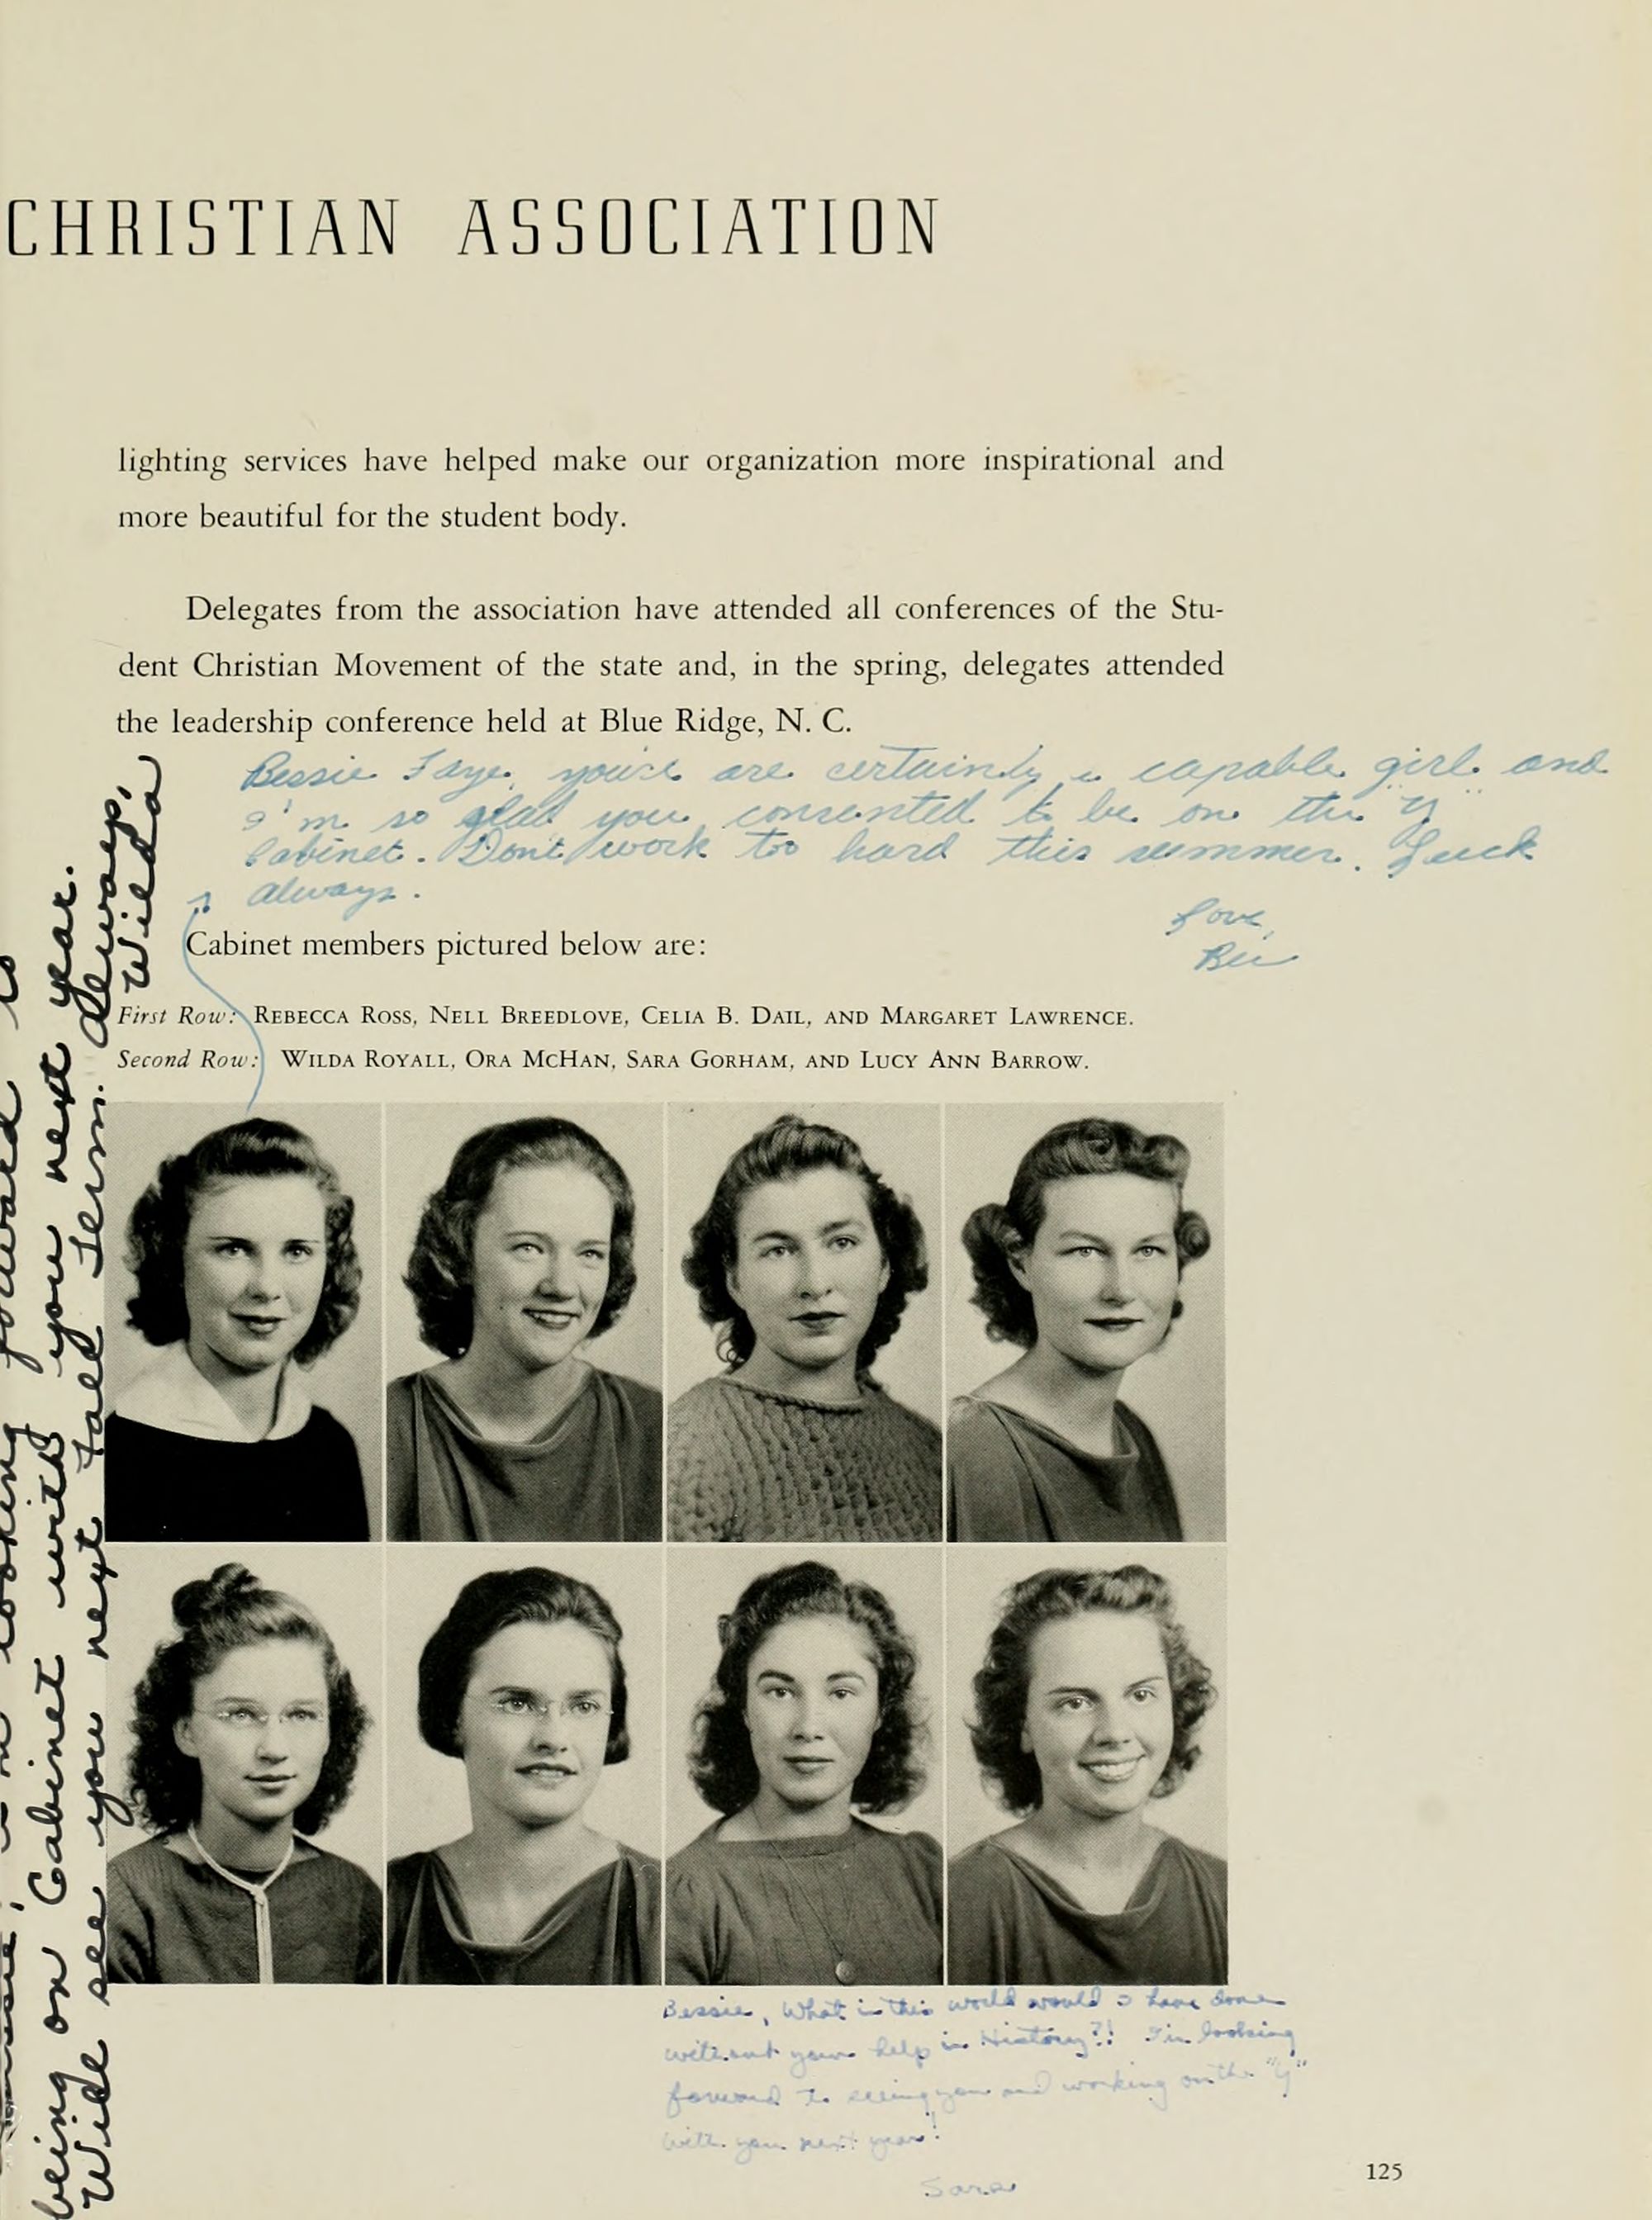 CHRISTIAN ASSOCIATION
lighting services have helped make our organization more inspirational and
more beautiful for the student body.
Delegates from the association have attended all conferences of the Stu-
dent Christian Movement of the state and, in the spring, delegates attended
the leadership conference held at Blue Ridge, N. C.
Bessie Faye, you're are certainly a capable girl and
I'm so glad you consented to be on the "Y"
Cabinet. Don't work too hard this summer. Luck
always.
Love,
Bec
Cabinet members pictured below are:
First Row: REBECCA ROSS, NELL BREEDLOVE, CELIA B. DAIL, AND MARGARET LAWRENCE.
Second Row: WILDA ROYALL, ORA MCHAN, SARA GORHAM, AND LUCY ANN BARROW.
looking forward to
being on Cabinet with you next year.
Will see you next Fall Term. Always,
Wilda
Bessie, What in this world would I have done
without your help in History?! I'm looking
forward to seeing you and working on the "Y"
with you next year!
Sara
125